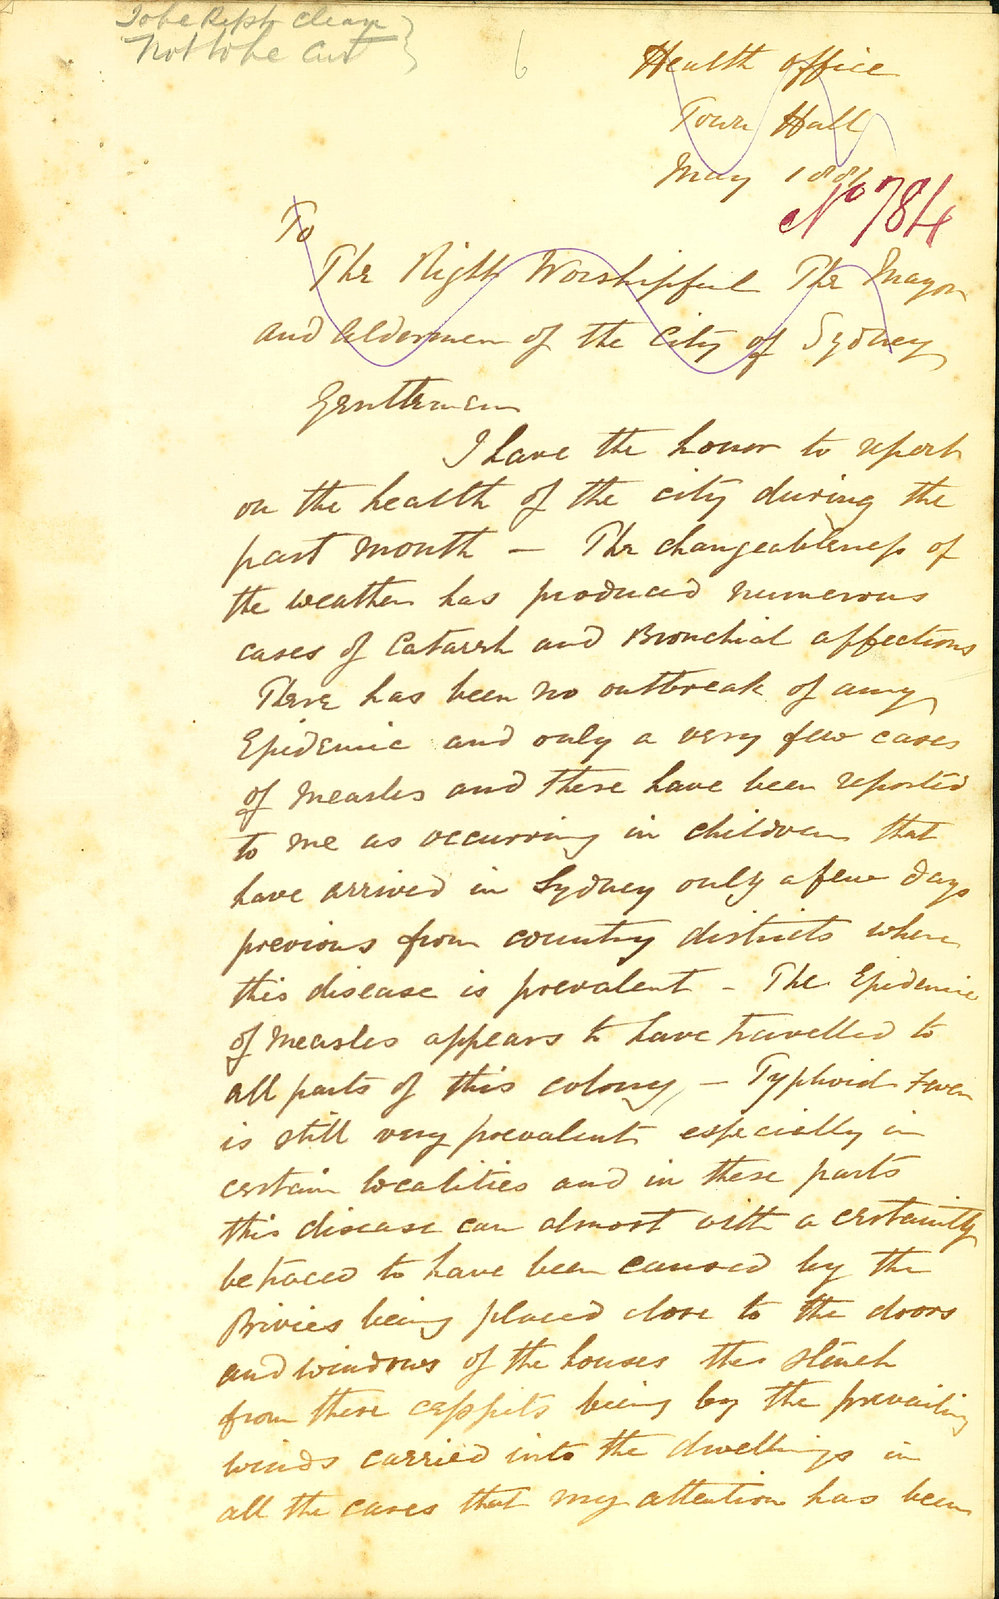 To be kept clean
Not to be cut
6
Health Office
Town Hall
May 188
No 784
To
The Right Worshipful The Mayor
and Aldermen of the City of Sydney
Gentlemen
I have the honor to report
on the health of the city during the
past month – The changeableness of
the weather has produced numerous
cases of Catarrh and Bronchial affections
There has been no outbreak of any
Epidemic and only a very few cases
of Measles and these have been reported
to me as occurring in children that
have arrived in Sydney only a few days
previous from country districts where
this disease is prevalent – The Epidemic
of Measles appears to have travelled to
all parts of this colony – Typhoid Fever
is still very prevalent especially in
certain localities and in these parts
this disease can almost with a certainty
be traced to have been caused by the
Privies being placed close to the doors
and windows of the houses the stench
from these cesspits being by the prevailing
winds carried into the dwellings in
all the cases that my attention has been